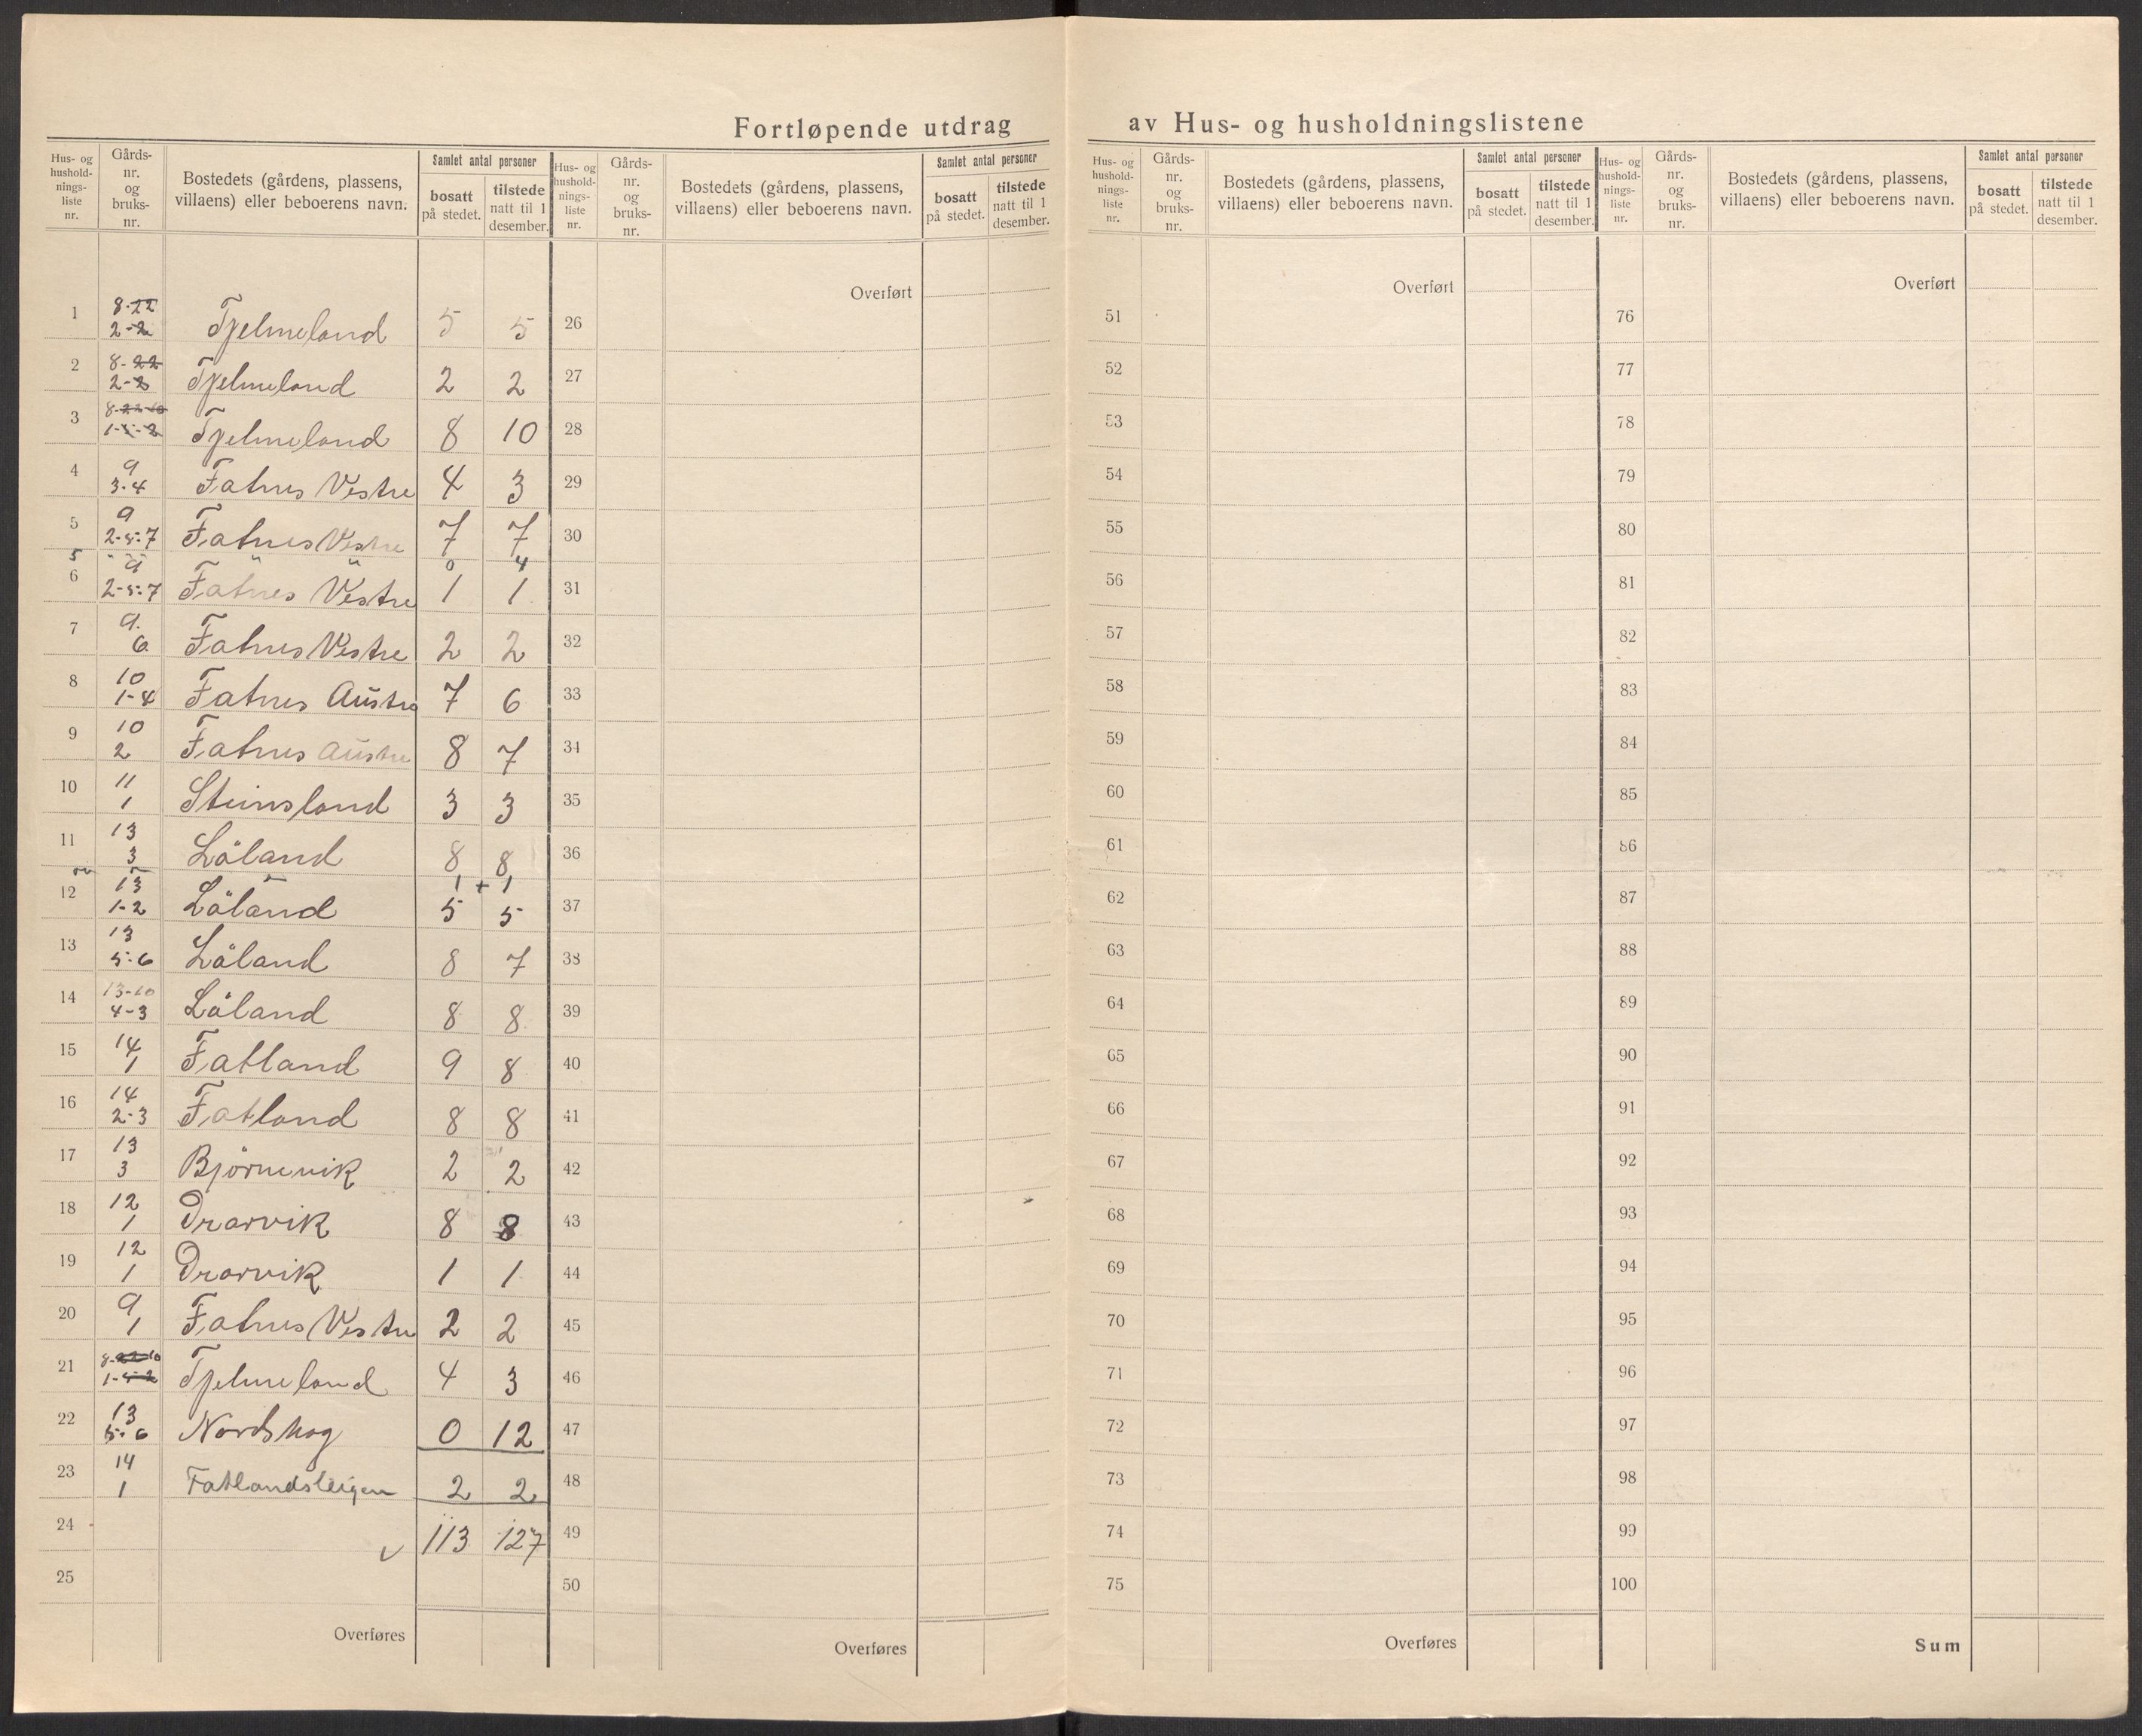 Fortløpende utdrag av Hus- og husholdningslistene
Hus- og hushold-nings-liste nr. | Gårds-nr. og bruks-nr. | Bostedets (gårdens, plassens, villaens) eller beboerens navn. | Samlet antal personer | bosatt på stedet. | tilstede natt til 1 desember.
Hus- og hushold-nings-liste nr. | Gårds-nr. og bruks-nr. | Bostedets (gårdens, plassens, villaens) eller beboerens navn. | Samlet antal personer | bosatt på stedet. | tilstede natt til 1 desember.
Hus- og hushold-nings-liste nr. | Gårds-nr. og bruks-nr. | Bostedets (gårdens, plassens, villaens) eller beboerens navn. | Samlet antal personer | bosatt på stedet. | tilstede natt til 1 desember.
Hus- og hushold-nings-liste nr. | Gårds-nr. og bruks-nr. | Bostedets (gårdens, plassens, villaens) eller beboerens navn. | Samlet antal personer | bosatt på stedet. | tilstede natt til 1 desember.
Overført
Overført
Overført
1 8-22 2-2 Tjelmeland 5 5
2 8-22 2-3 Tjelmeland 2 2
3 8-22-10 1-5-2 Tjelmeland 8 10
4 9 3.4 Fatnes Vestre 4 3
5 9 2-5-7 Fatnes Vestre 7 7
5 " " " " 0 4
6 9 2-5-7 Fatnes Vestre 1 1
7 9. 6 Fatnes Vestre 2 2
8 10 1-4 Fatnes Austre 7 6
9 10 2 Fatnes Austre 8 7
10 11 1 Steinsland 3 3
11 13 3 Låland 8 8
1 + 1
12 13 1-2 Låland 5 5
13 13 5-6 Låland 8 7
14 13-10 4-3 Låland 8 8
15 14 1 Fatland 9 8
16 14 2-3 Fatland 8 8
17 13 3 Björnevik 2 2
18 12 1 Drarvik 8 8
19 12 1 Drarvik 1 1
20 9 1 Fatnes Vestre 2 2
21 8-22-10 1-5-2 Tjelmeland 4 3
22 13 5-6 Nordskog 0 12
23 14 1 2 2
24 113 127
25
Overføres
26
27
28
29
30
31
32
33
34
35
36
37
38
39
40
41
42
43
44
45
46
47
48
49
50
Overføres
51
52
53
54
55
56
57
58
59
60
61
62
63
64
65
66
67
68
69
70
71
72
73
74
75
Overføres
76
77
78
79
80
81
82
83
84
85
86
87
88
89
90
91
92
93
94
95
96
97
98
99
100
Sum